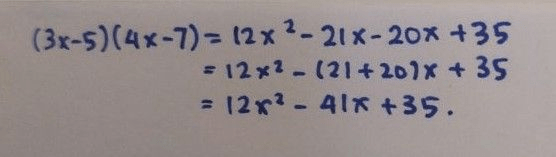 (3x-5)(4x-7) = 12x² - 21x - 20x + 35
= 12x² - (21+20)x + 35
= 12x² - 41x + 35.